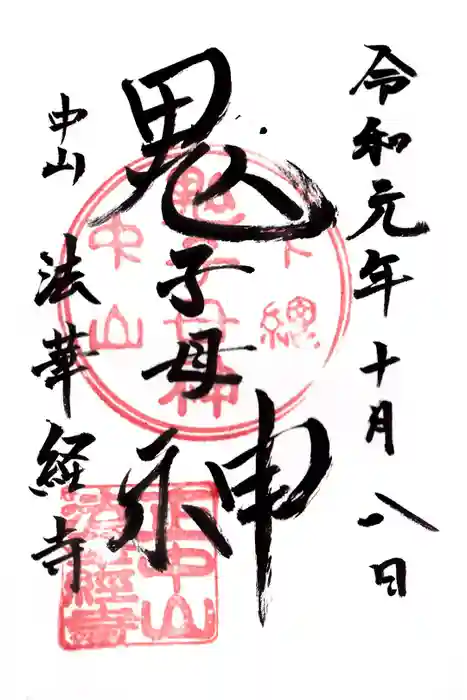 令和元年十月八日
鬼子母神
中山 法華経寺
下總
鬼子母神
中山
正中山
法華經寺